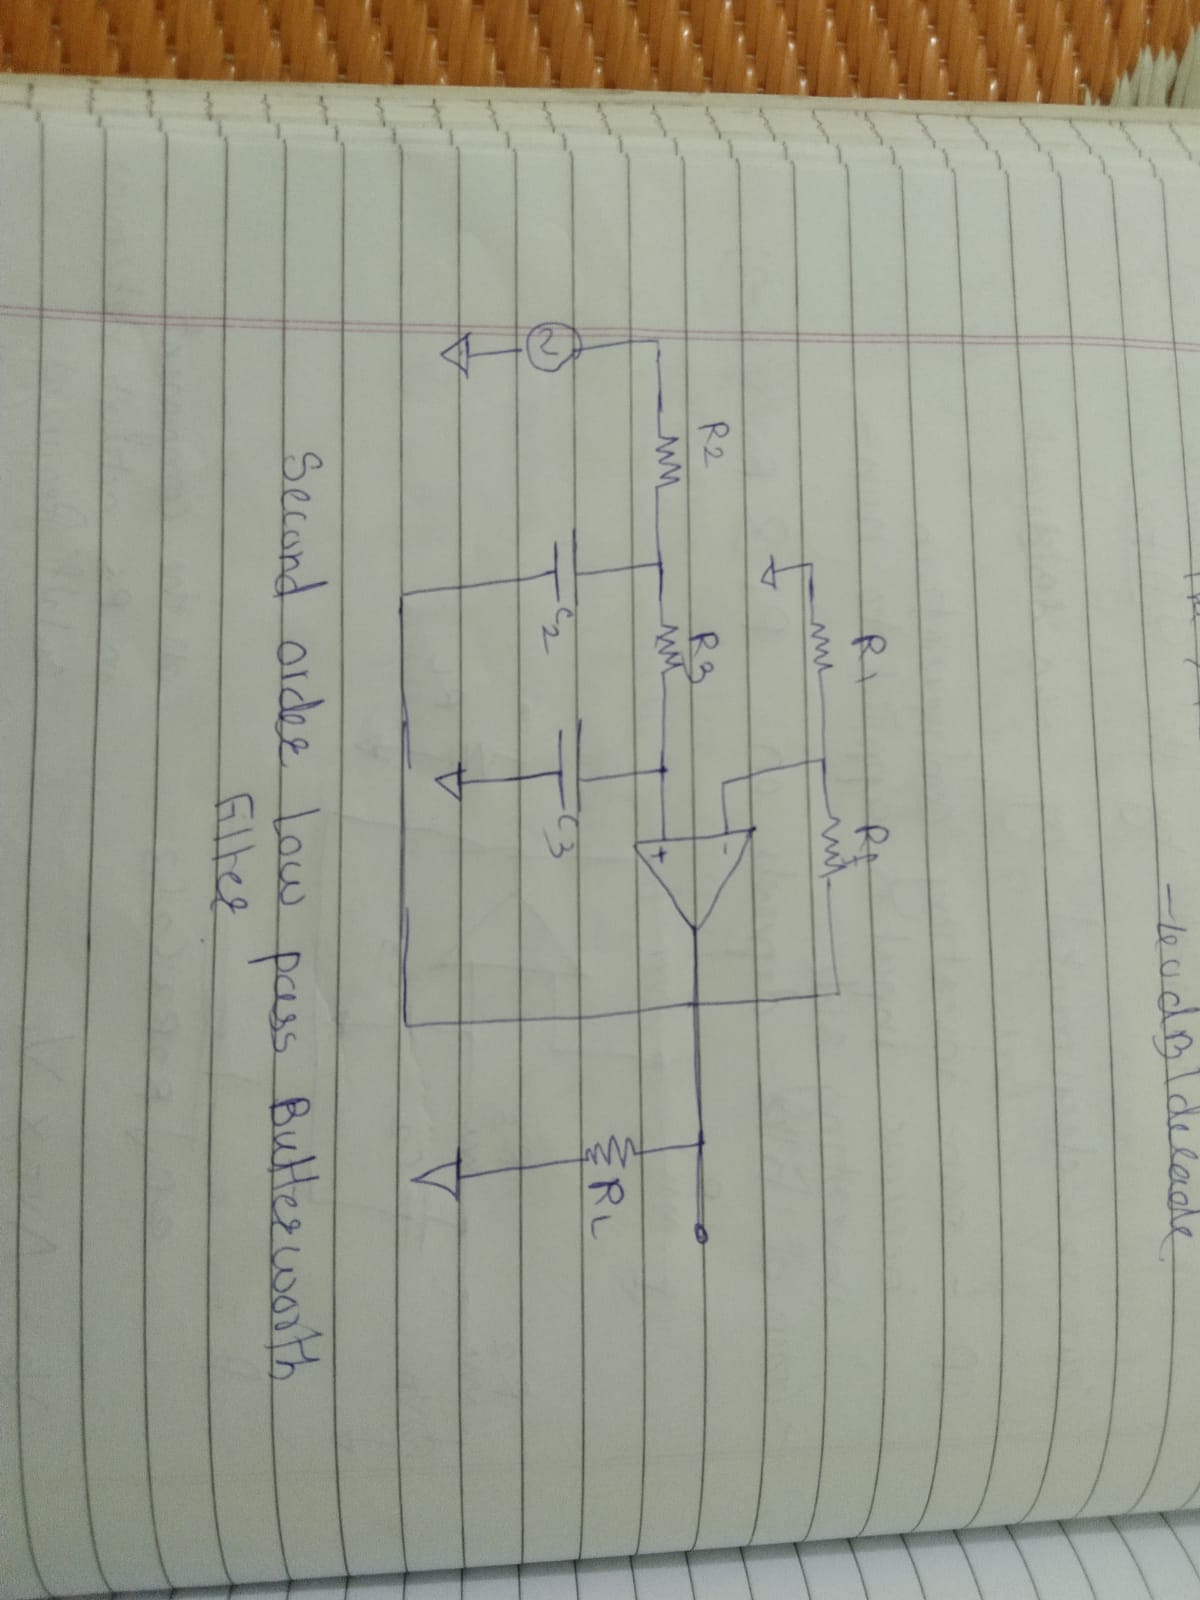 -40dB/decade.
R1
Rf
R2
R3
-
+
C2
C3
RL
Second order low pass Butterworth
Filter